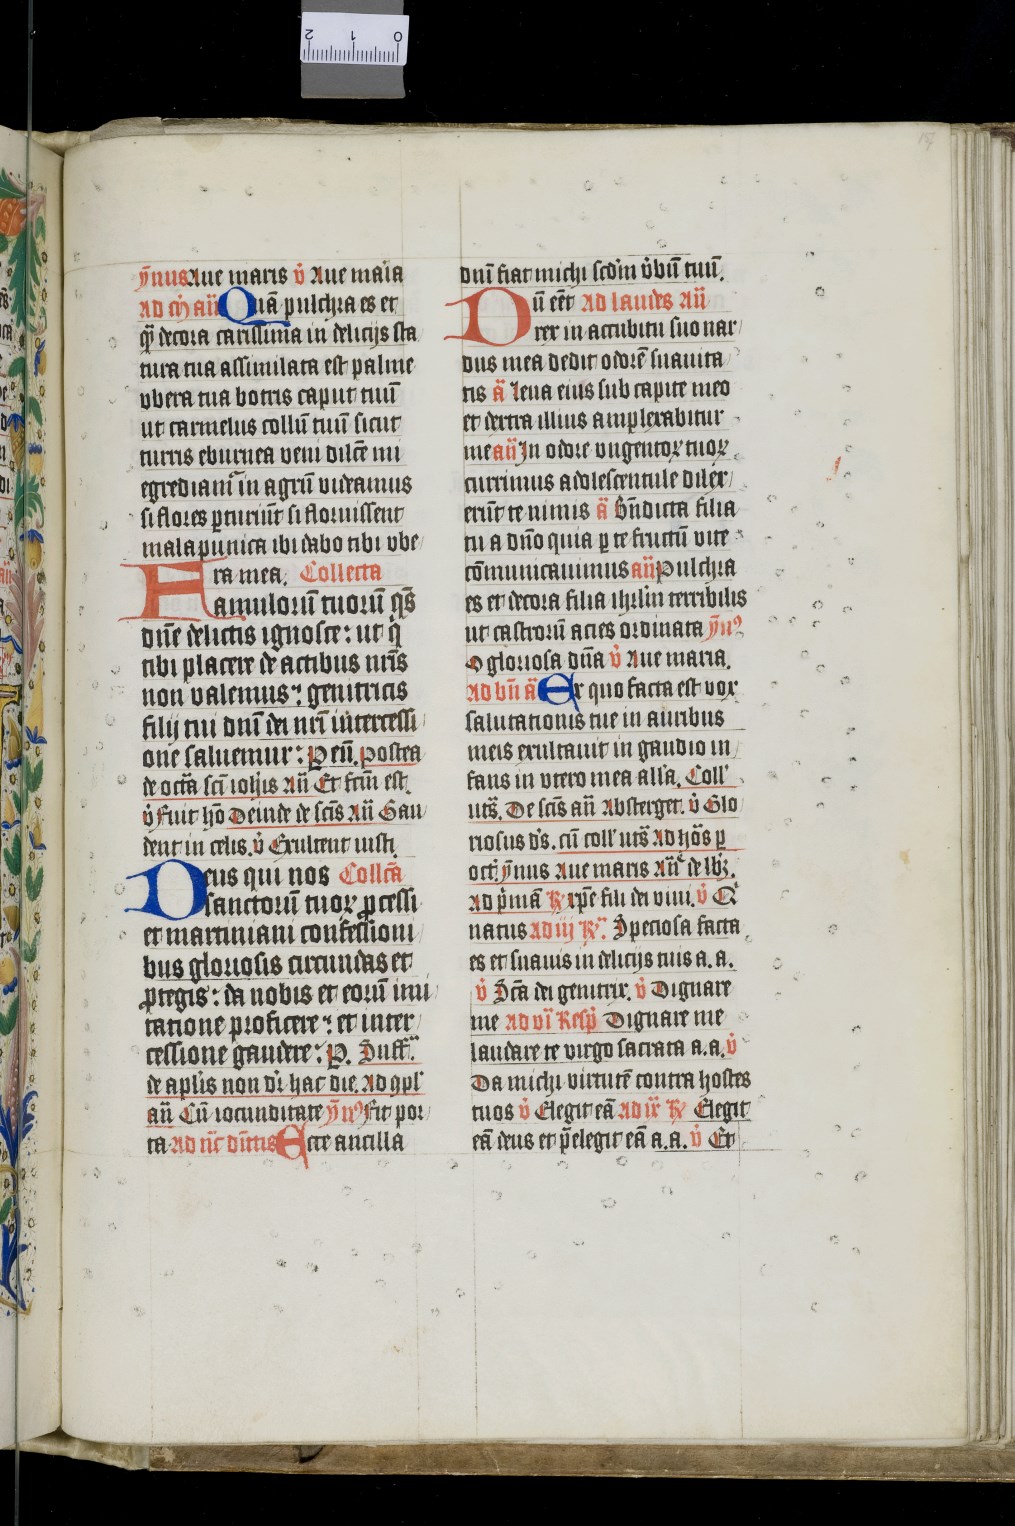 ȳnus Aue maris v̇ Aue maīa
Ad cm̄ aū Quā pulchra es et
q̄ decora carissima in delicijs sta
tura tua assimilata est palme
vbera tua botris caput tuū
ut carmelus collū tuū sicut
turris eburnea veni dilc̄e mi
egrediam̄ in agrū videamus
si flores p̄turiūt si floruissent
mala punica ibi dabo tibi vbe
ra mea. Collecta
Famulorū tuorū q̄s
dn̄e delictis ignosce: ut q̄
tibi placere de actibus nr̄is
non valemus: genitricis
filij tui dn̄i dei nr̄i intercessi
one saluemur: P eū. postea
de octā sc̄i ioh̄is Aū Et fcm̄ est
v̇ Fuit hō Deinde de sc̄is Aū Gau
dent in celis. v̇ Exultent iusti
Deus qui nos Collc̄a
sanctorū tuoꝝ ꝓcessi
et martiniani confessioni
bus gloriosis circundas et
ꝓtegis: da nobis et eorū imi
tatione proficere: et inter
cessione gaudere: P. Suff.
de apl̄is non dr̄ hac die. Ad ꝯpl
aū Cū iocunditate ȳn9 Fit por
ta Ad nūc dīttis Ecce ancilla
dn̄i fiat michi scdm̄ v̇bū tuū.
Dū eēt Ad laudes Aū
rex in accubitu suo nar
dus mea dedit odorē suauita
tis ā Leua eius sub capite meo
et dextra illius amplexabitur
me aū In odore vngentoꝝ tuoꝝ
currimus adolescentule dilex
erūt te nimis ā Bn̄dicta filia
tu a dn̄o quia p te fructū vite
cōmunicauimus aū Pulchra
es et decora filia ihrl̄m terribilis
ut castrorū acies ordinata ȳn9
O gloriosa dn̄a v̇ Aue maria.
Ad bn̄ ā Ex quo facta est vox
salutationis tue in auribus
meis exultauit in gaudio in
fans in vtero mea all̄a. Coll
ut s̄. De sc̄is aū Absterget. v̇ Glo
riosus d̄s. cū coll ut s̄ Ad hōs p
oct. ȳnus Aue maris Aū de lb̄z.
Ad p̄mā ℟ xp̄e fili dei viui. v̇ Q̄
natus Ad iij ℟ Speciosa facta
es et suauis in delicijs tuis a. a.
v̇ Sc̄a dei genitrix. v̇ Dignare
me Ad vī Resp̄ Dignare me
laudare te virgo sacrata a. a. v̇
Da michi virtutē contra hostes
tuos v̇ Elegit eā Ad ix ℟ Elegit
eā deus et p̄elegit eā a. a. v̇ Et
0 1 2